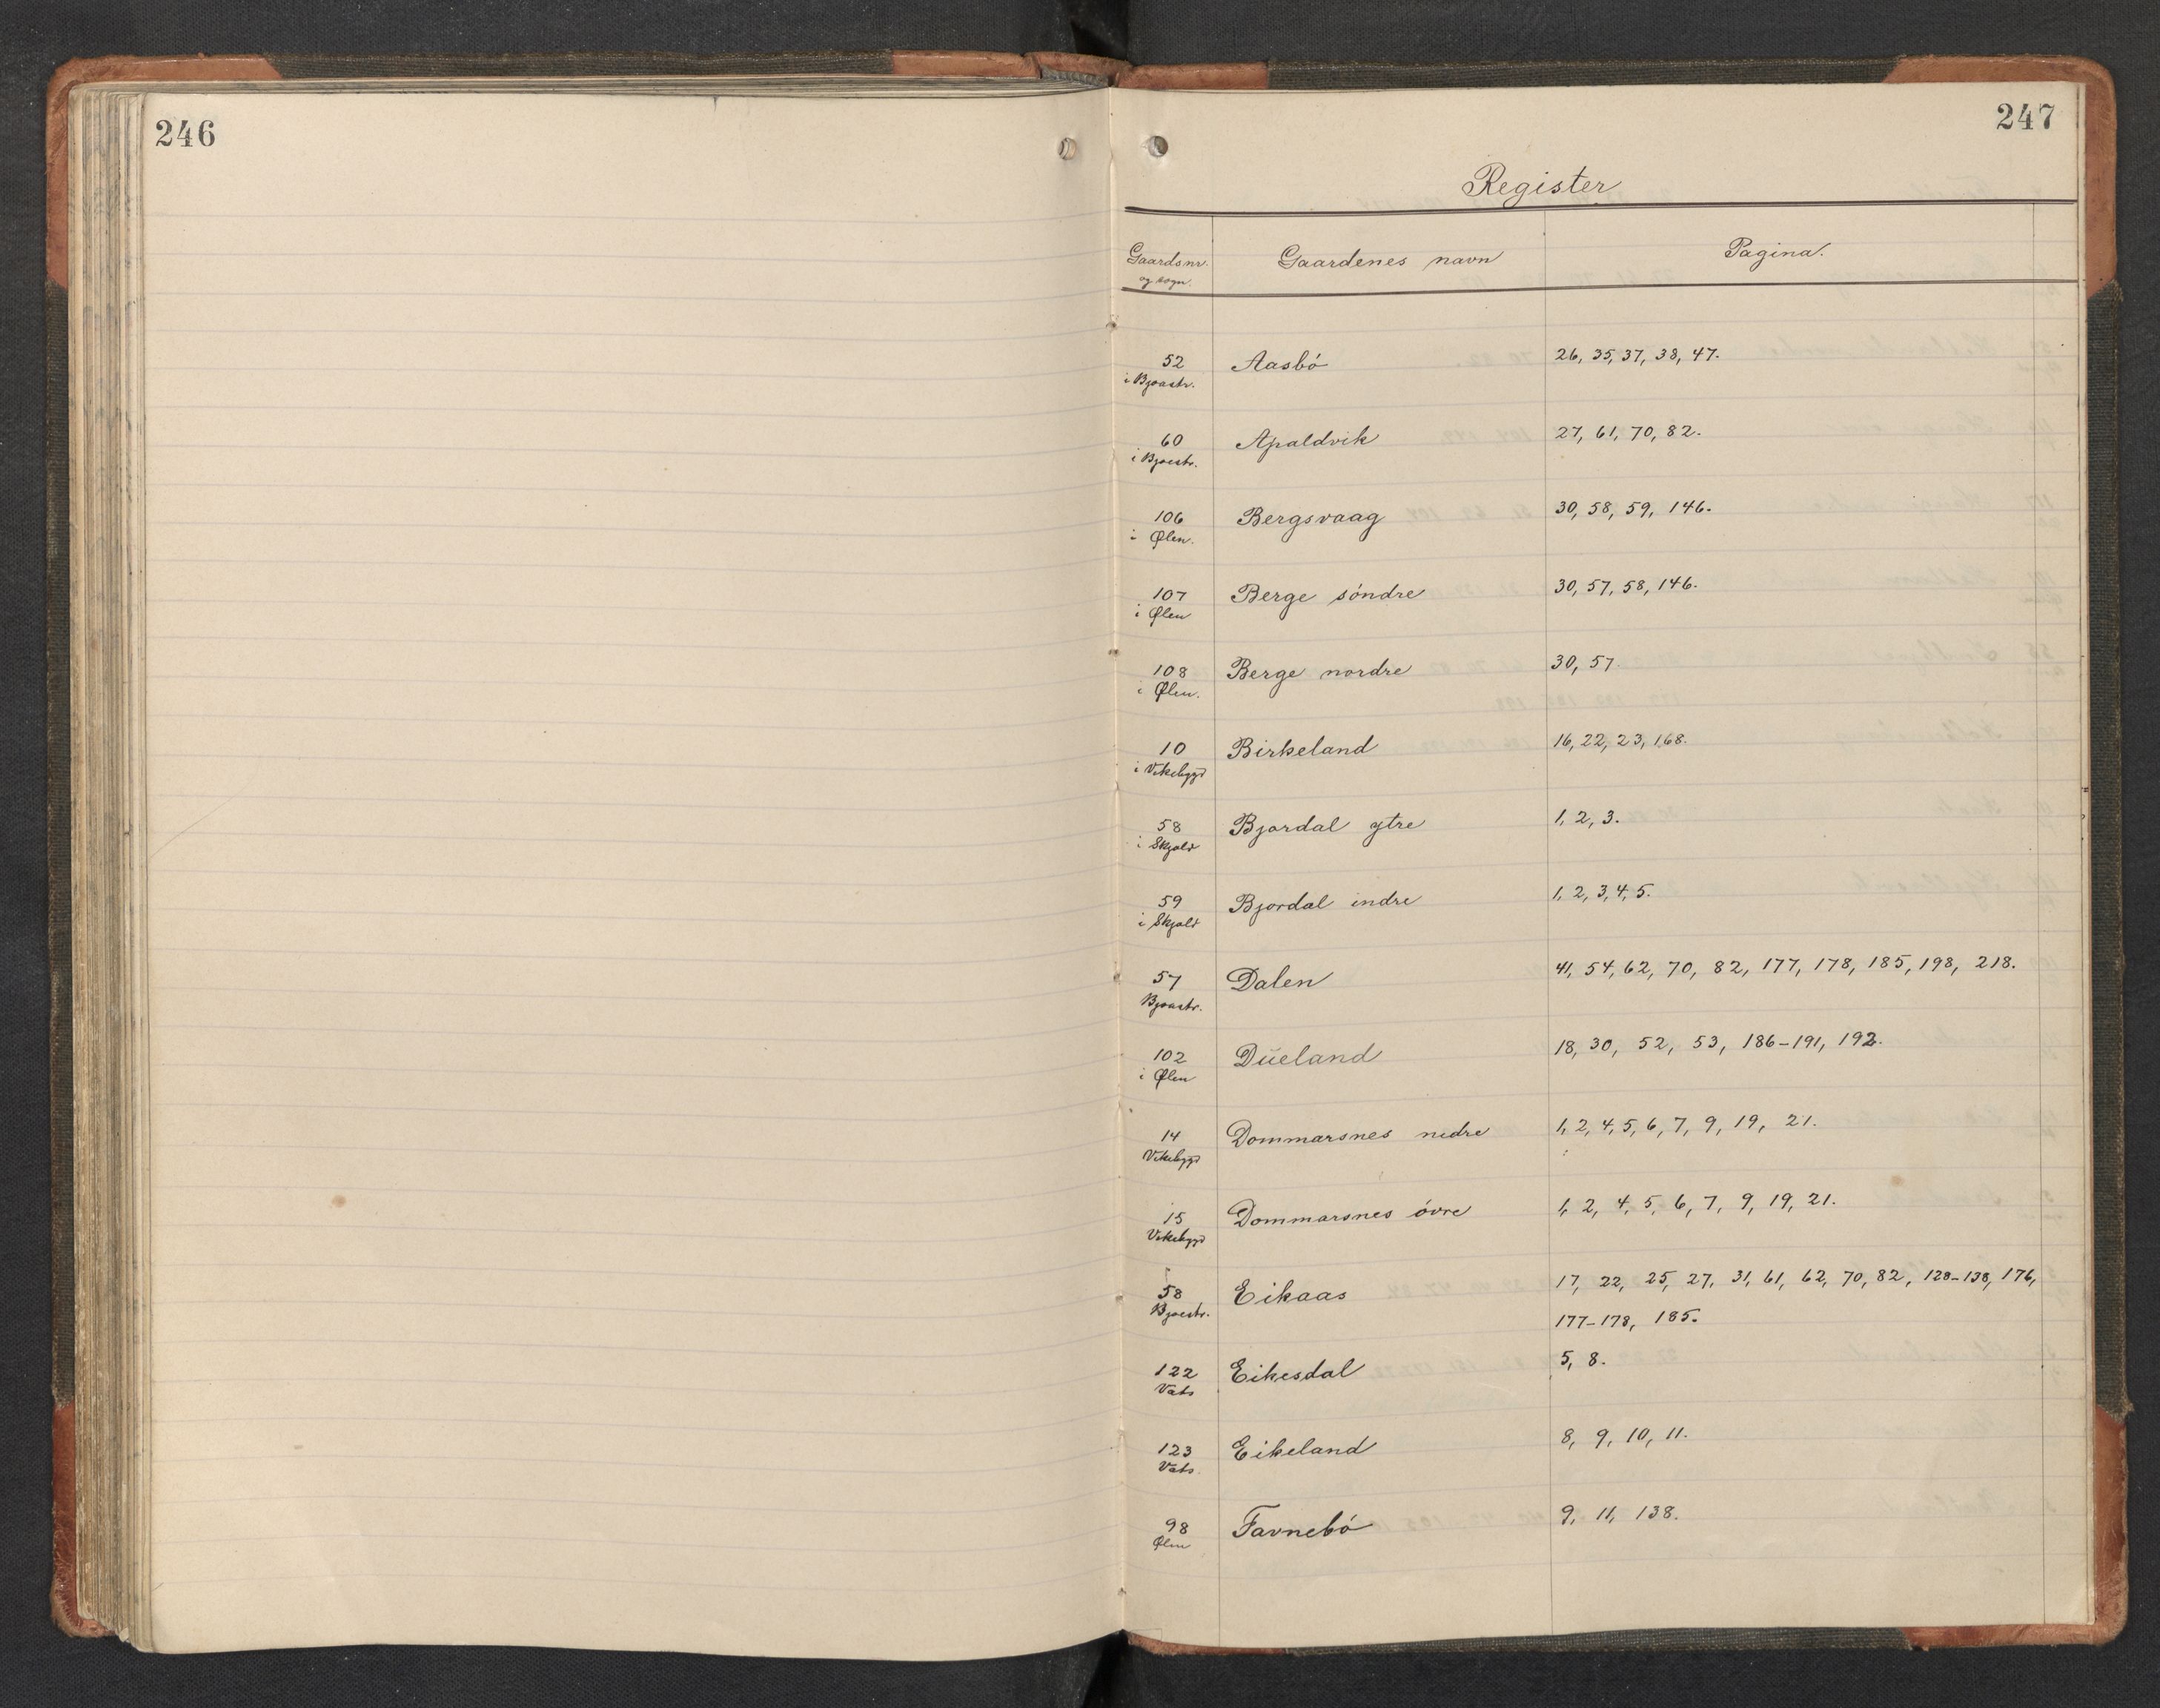 246
247
Register
Gaardsnr. og sogn. Gaardenes navn Pagina.
52 Aasbó 26, 35, 37, 38, 47.
i Bjoastr.
60 Apaldvik 27, 61, 70, 82.
i Bjoestr.
106 Bergsvaag 30, 58, 59, 146.
i Ølen.
107 Berge sóndre 30, 57, 58, 146.
i Ølen
108 Berge nordre 30, 57.
i Ølen.
10 Birkeland 16, 22, 23, 168.
i Vikebygd
58 Bjordal ytre 1, 2, 3.
i Skjold
59 Bjordal indre 1, 2, 3, 4, 5.
i Skjold
57 Dalen 41, 54, 62, 70, 82, 177, 178, 185, 198, 218.
Bjoastr.
102 Dŭeland 18, 30, 52, 53, 186-191, 192.
i Ølen
14 Dommarsnes nedre 1, 2, 4, 5, 6, 7, 9, 19, 21.
Vikebygd
15 Dommarsnes óvre 1, 2, 4, 5, 6, 7, 9, 19, 21.
Vikebygd
58 Eikaas 17, 22, 25, 27, 31, 61, 62, 70, 82, 128-138, 176,
Bjoestr. 177-178, 185.
122 Eikesdal 5, 8.
Vats
123 Eikeland 8, 9, 10, 11.
Vats.
98 Favnebó 9, 11, 138.
Ølen